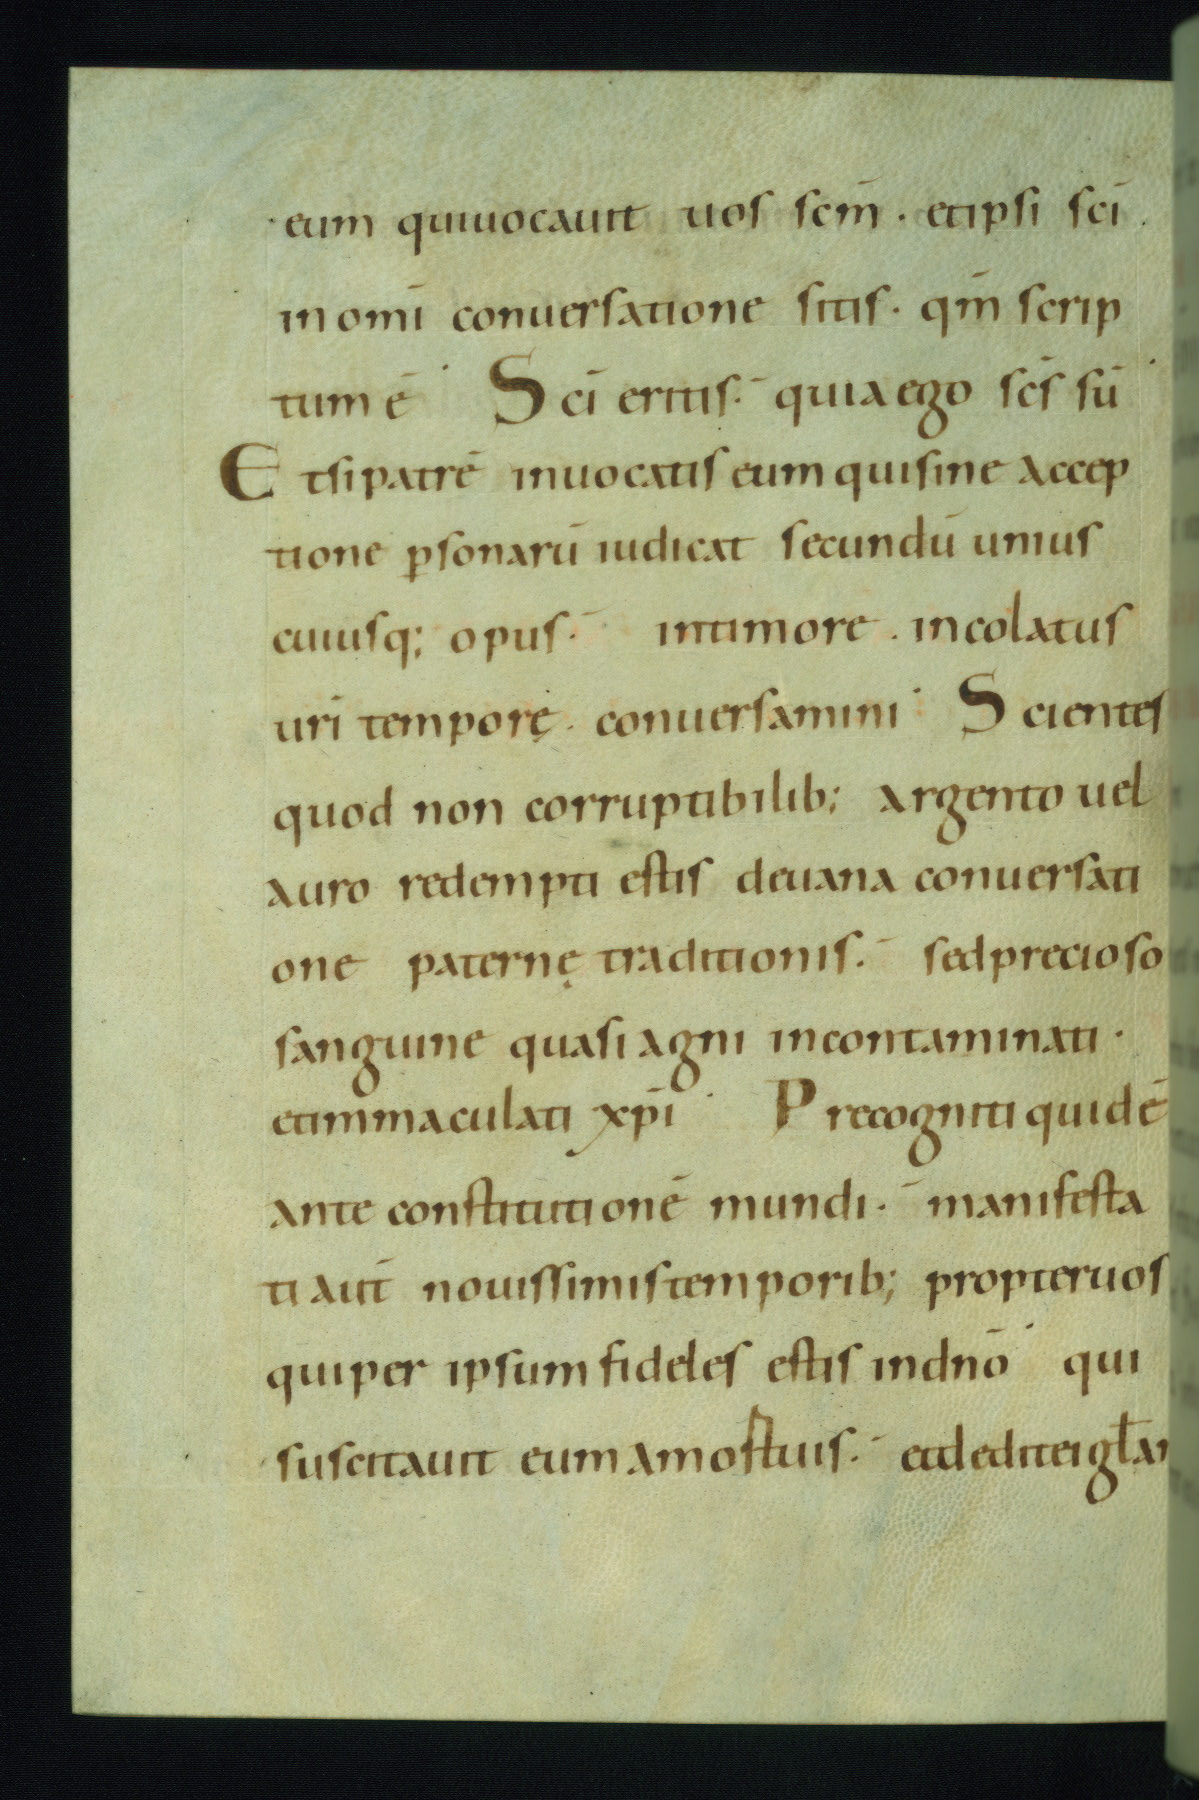 eum quiuocauit uos scm̄ . etipsi sci̅ .
inomī conuersatione sitis . qm̄ scrip
tum ē Sci̅ eritis . quiaego scs̄ sū
Etsipatrē inuocatis eum quisine accep
tione ꝑsonarū iudicat secundū unius
cuiusq; opus . intimore . incolatus
uri̅ temporę . conuersamini Scientes
quod non corruptibilib; argento uel
auro redempti estis deuana conuersati
one paternę traditionis . sedprecioso
sanguine quasi agni incontaminati .
etimmaculati xp̄i Precogniti quidē
ante constitutionē mundi . manifesta
ti aut̄ nouissimistemporib; propteruos
quiper ipsum fideles estis indnō qui
suscitauit eum amortuis . etdeditei gła